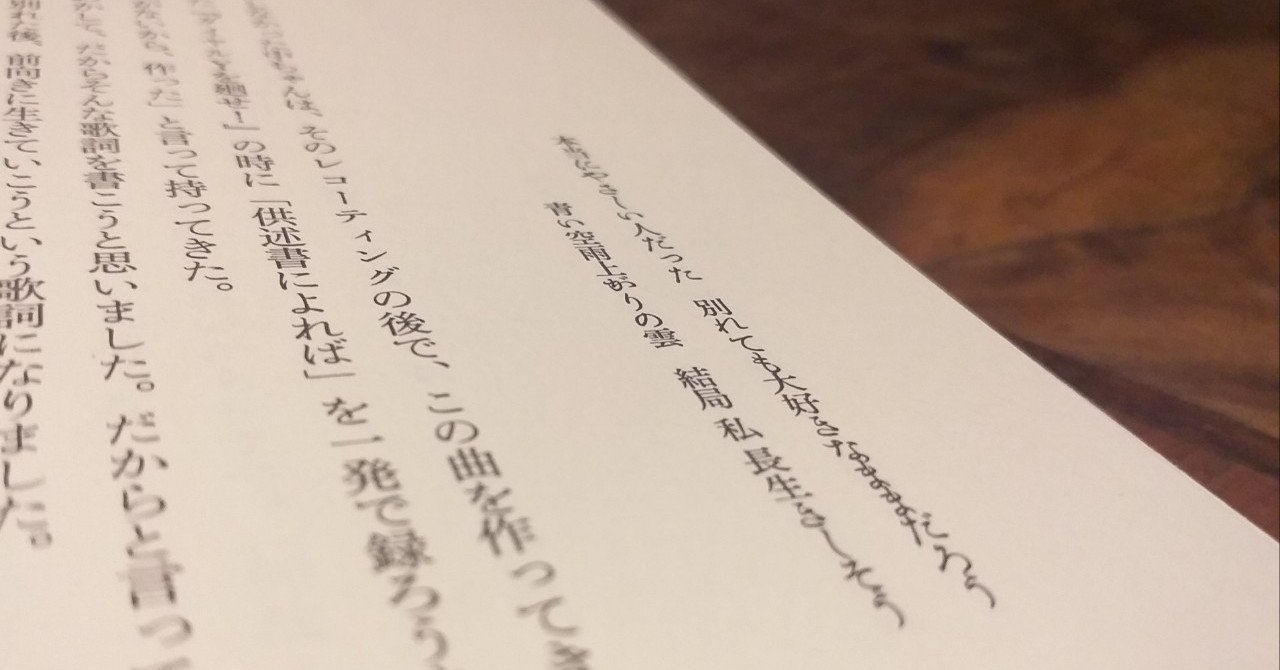 本当にやさしい人だった 別れても大好きなままだろう
青い空雨上がりの雲 結局 私 長生きしそう
は、そのレコーディングの後で、この曲を作ってき
を廻せ!」の時に「供述書によれば」を一発で録ろう
ないから、作った」と言って持ってきた。
だからそんな歌詞を書こうと思いました。だからと言っ
別れた後、前向きに生きていこうという歌詞になりました。